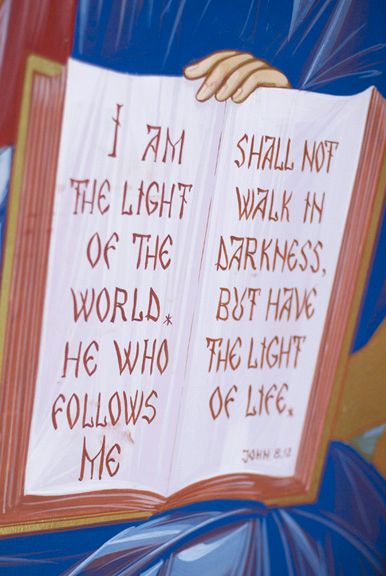 I AM
THE LIGHT
OF THE
WORLD.
HE WHO
FOLLOWS
ME
SHALL NOT
WALK IN
DARKNESS,
BUT HAVE
THE LIGHT
OF LIFE.
JOHN 8:12